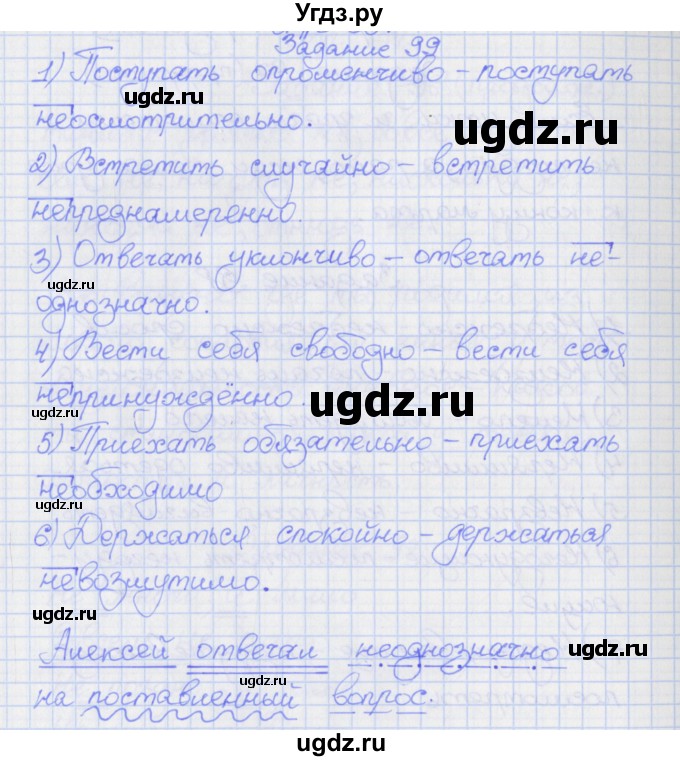 Угдз.ру
Задание 99
1) Поступать опроменчиво – поступать
неосмотрительно.
2) Встретить случайно – встретить
непреднамеренно.
3) Отвечать уклончиво – отвечать не-
однозначно.
4) Вести себя свободно – вести себя
непринуждённо.
5) Приехать обязательно – приехать
необходимо
6) Держаться спокойно – держаться
невозмутимо.
Алексей отвечал неоднозначно
на поставленный вопрос.
ugdz.ru
ugdz.ru
ugdz.ru
ugdz.ru
ugdz.ru
ugdz.ru
ugdz.ru
ugdz.ru
ugdz.ru
ugdz.ru
ugdz.ru
ugdz.ru
ugdz.ru